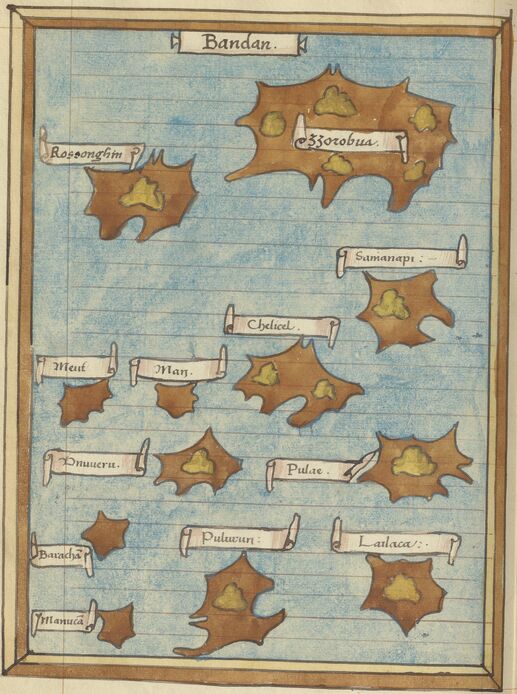 Bandan.
Rossonghin
ZZorobua.
Samanapi: -
Chelicel.
Meut
Man.
Unuueru.
Pulae.
Barachā
Puluuun:
Lailaca:
Manucā